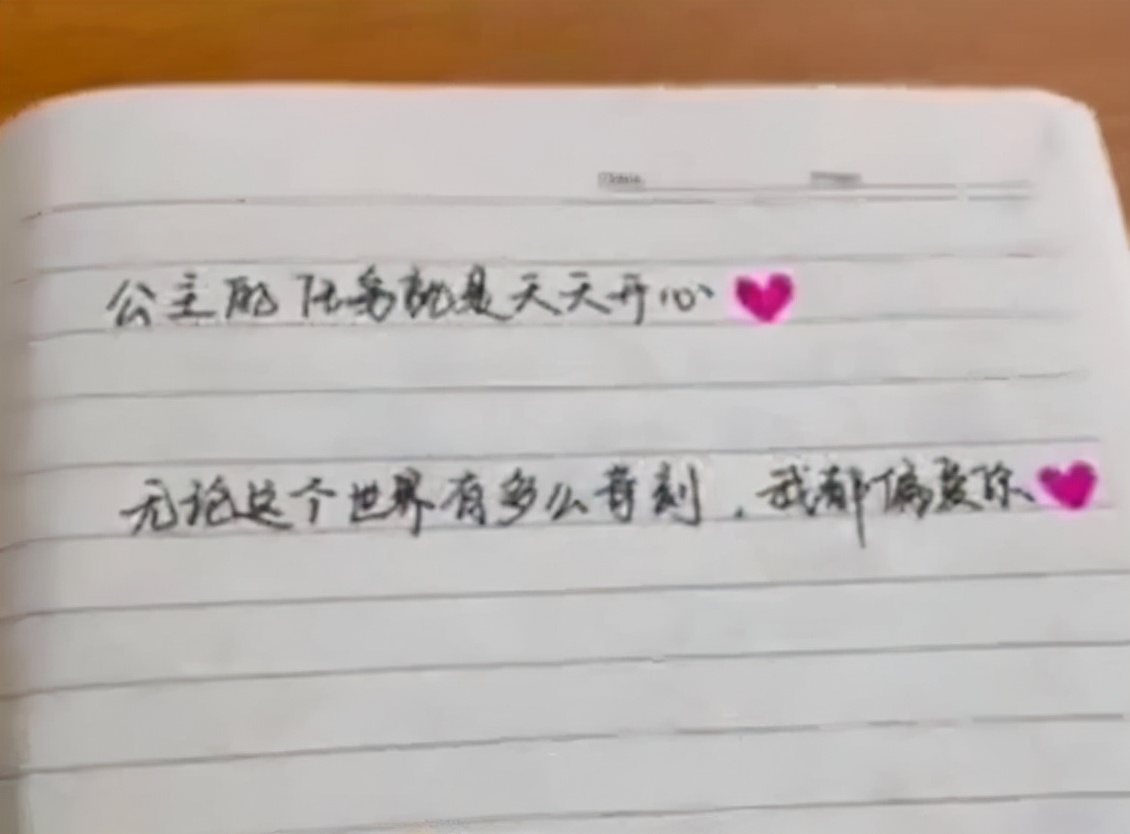 公主的任务就是天天开心
无论这个世界有多么苛刻，我都偏爱你